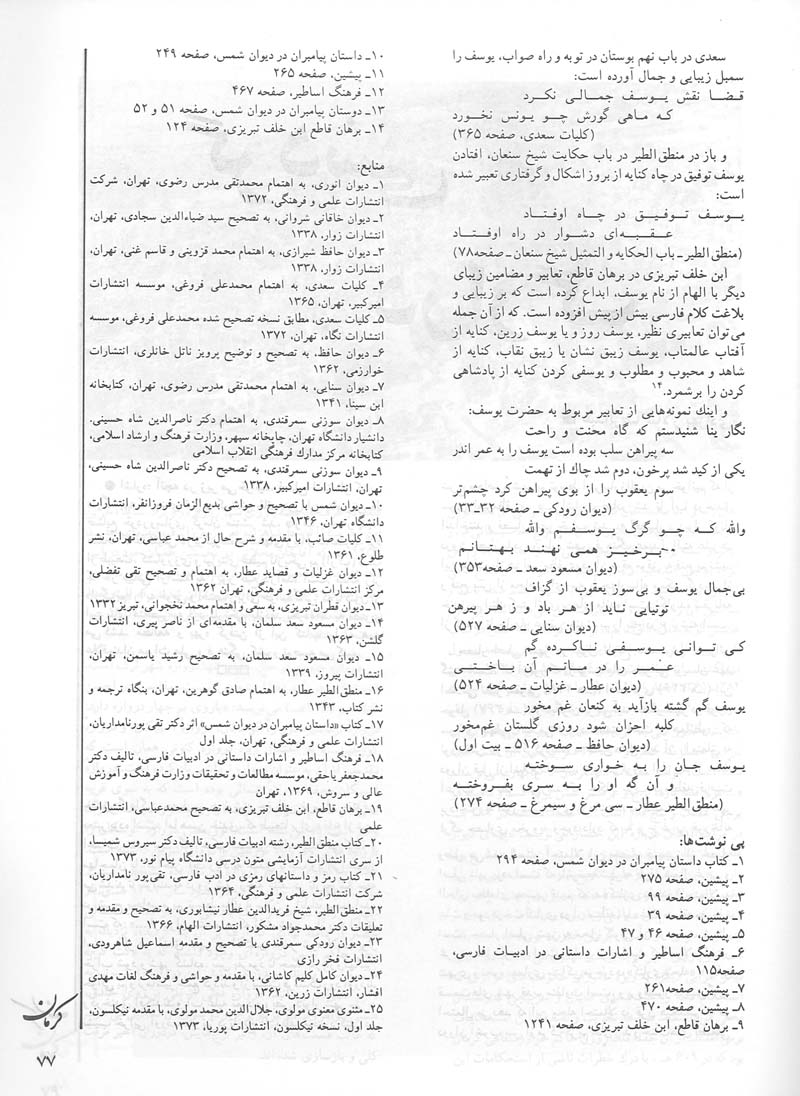 سعدی در باب نهم بوستان در توبه و راه صواب، یوسف را
سمبل زیبایی و جمال آورده است:
قضا نقش یوسف جمالی نکرد
که ماهی گورش چو یونس نخورد
(کلیات سعدی، صفحه ۳۶۵)
و باز در منطق‌الطیر در باب حکایت شیخ سنعان، افتادن
یوسف توفیق در چاه کنایه از بروز اشکال و گرفتاری تعبیر شده
است:
یوسف توفیق در چاه اوفتاد
عقبه‌ای دشوار در راه اوفتاد
(منطق‌الطیر ـ باب الحکایه و التمثیل شیخ سنعان ـ صفحه۷۸)
ابن خلف تبریزی در برهان قاطع، تعابیر و مضامین زیبای
دیگر با الهام از نام یوسف، ابداع کرده است که بر زیبایی و
بلاغت کلام فارسی بیش از پیش افزوده است. که از آن جمله
می‌توان تعابیری نظیر، یوسف روز و یا یوسف زرین، کنایه از
آفتاب عالمتاب، یوسف زیبق نشان یا زیبق نقاب، کنایه از
شاهد و محبوب و مطلوب و یوسفی کردن کنایه از پادشاهی
کردن را برشمرد.۱۴
و اینك نمونه‌هایی از تعابیر مربوط به حضرت یوسف:
نگار ینا شنیدستم که گاه محنت و راحت
سه پیراهن سلب بوده است یوسف را به عمر اندر
یکی از کید شد پرخون، دوم شد چاك از تهمت
سوم یعقوب را از بوی پیراهن کرد چشم‌تر
(دیوان رودکی ـ صفحه ۳۲ـ۳۳)
والله که چو گرگ یوسفم والله
برخیز همی نهند بهتانم
(دیوان مسعود سعد ـ صفحه۳۵۳)
بی‌جمال یوسف و بی‌سوز یعقوب از گزاف
توتیایی ناید از هر باد و ز هر پیرهن
(دیوان سنایی ـ صفحه ۵۲۷)
کی توانی یوسفی ناکرده گم
عمر را در ماتم آن باختی
(دیوان عطار ـ غزلیات ـ صفحه ۵۲۴)
یوسف گم گشته بازآید به کنعان غم مخور
کلبه احزان شود روزی گلستان غم‌مخور
(دیوان حافظ ـ صفحه ۵۱۶ ـ بیت اول)
یوسف جان را به خواری سوخته
و آن گه او را به سری بفروخته
(منطق‌الطیر عطار ـ سی مرغ و سیمرغ ـ صفحه ۲۷۴)
پی نوشت‌ها:
۱ـ کتاب داستان پیامبران در دیوان شمس، صفحه ۲۹۴
۲ـ پیشین، صفحه ۲۷۵
۳ـ پیشین، صفحه ۹۹
۴ـ پیشین، صفحه ۳۹
۵ـ پیشین، صفحه ۴۶ و ۴۷
۶ـ فرهنگ اساطیر و اشارات داستانی در ادبیات فارسی،
صفحه۱۱۵
۷ـ پیشین، صفحه۲۶۱
۸ـ پیشین، صفحه ۴۷۰
۹ـ برهان قاطع، ابن خلف تبریزی، صفحه ۱۲۴۱
۱۰ـ داستان پیامبران در دیوان شمس، صفحه ۲۴۹
۱۱ـ پیشین، صفحه ۲۶۵
۱۲ـ فرهنگ اساطیر، صفحه ۴۶۷
۱۳ـ دوستان پیامبران در دیوان شمس، صفحه ۵۱ و ۵۲
۱۴ـ برهان قاطع ابن خلف تبریزی، صفحه ۱۲۴
منابع:
۱ـ دیوان انوری، به اهتمام محمدتقی مدرس رضوی، تهران، شرکت
انتشارات علمی و فرهنگی، ۱۳۷۲
۲ـ دیوان خاقانی شروانی، به تصحیح سید ضیاءالدین سجادی، تهران،
انتشارات زوار، ۱۳۳۸
۳ـ دیوان حافظ شیرازی، به اهتمام محمد قزوینی و قاسم غنی، تهران،
انتشارات زوار، ۱۳۳۸
۴ـ کلیات سعدی، به اهتمام محمدعلی فروغی، موسسه انتشارات
امیرکبیر، تهران، ۱۳۶۵
۵ـ کلیات سعدی، مطابق نسخه تصحیح شده محمدعلی فروغی، موسسه
انتشارات نگاه، تهران، ۱۳۷۲
۶ـ دیوان حافظ، به تصحیح و توضیح پرویز ناتل خانلری، انتشارات
خوارزمی، ۱۳۶۲
۷ـ دیوان سنایی، به اهتمام محمدتقی مدرس رضوی، تهران، کتابخانه
ابن سینا، ۱۳۴۱
۸ـ دیوان سوزنی سمرقندی، به اهتمام دکتر ناصرالدین شاه حسینی،
دانشیار دانشگاه تهران، چاپخانه سپهر، وزارت فرهنگ و ارشاد اسلامی،
کتابخانه مرکز مدارك فرهنگی انقلاب اسلامی
۹ـ دیوان سوزنی سمرقندی، به تصحیح دکتر ناصرالدین شاه حسینی،
تهران، انتشارات امیرکبیر، ۱۳۳۸
۱۰ـ دیوان شمس با تصحیح و حواشی بدیع‌الزمان فروزانفر، انتشارات
دانشگاه تهران، ۱۳۴۶
۱۱ـ کلیات صائب، با مقدمه و شرح حال از محمد عباسی، تهران، نشر
طلوع، ۱۳۶۱
۱۲ـ دیوان غزلیات و قصاید عطار، به اهتمام و تصحیح تقی تفضلی،
مرکز انتشارات علمی و فرهنگی، تهران ۱۳۶۲
۱۳ـ دیوان قطران تبریزی، به سعی و اهتمام محمد نخجوانی، تبریز ۱۳۳۲
۱۴ـ دیوان مسعود سعد سلمان، با مقدمه‌ای از ناصر پیری، انتشارات
گلشن، ۱۳۶۳
۱۵ـ دیوان مسعود سعد سلمان، به تصحیح رشید یاسمن، تهران،
انتشارات پیروز، ۱۳۳۹
۱۶ـ منطق‌الطیر عطار، به اهتمام صادق گوهرین، تهران، بنگاه ترجمه و
نشر کتاب، ۱۳۴۳
۱۷ـ کتاب «داستان پیامبران در دیوان شمس» اثر دکتر تقی پورنامداریان،
انتشارات علمی و فرهنگی، تهران، جلد اول
۱۸ـ فرهنگ اساطیر و اشارات داستانی در ادبیات فارسی، تالیف دکتر
محمدجعفر یاحقی، موسسه مطالعات و تحقیقات وزارت فرهنگ و آموزش
عالی و سروش، ۱۳۶۹، تهران
۱۹ـ برهان قاطع، ابن خلف تبریزی، به تصحیح محمدعباسی، انتشارات
علمی
۲۰ـ کتاب منطق‌الطیر، رشته ادبیات فارسی، تالیف دکتر سیروس شمیسا،
از سری انتشارات آزمایشی متون درسی دانشگاه پیام نور، ۱۳۷۳
۲۱ـ کتاب رمز و داستانهای رمزی در ادب فارسی، تقی‌پور نامداریان،
شرکت انتشارات علمی و فرهنگی، ۱۳۶۴
۲۲ـ منطق‌الطیر، شیخ فریدالدین عطار نیشابوری، به تصحیح و مقدمه و
تعلیقات دکتر محمدجواد مشکور، انتشارات الهام، ۱۳۶۶
۲۳ـ دیوان رودکی سمرقندی با تصحیح و مقدمه اسماعیل شاهرودی،
انتشارات فخر رازی
۲۴ـ دیوان کامل کلیم کاشانی، با مقدمه و حواشی و فرهنگ لغات مهدی
افشار، انتشارات زرین، ۱۳۶۲
۲۵ـ مثنوی معنوی مولوی، جلال‌الدین محمد مولوی، با مقدمه نیکلسون،
جلد اول، نسخه نیکلسون، انتشارات پوریا، ۱۳۷۳
کرمان
۷۷